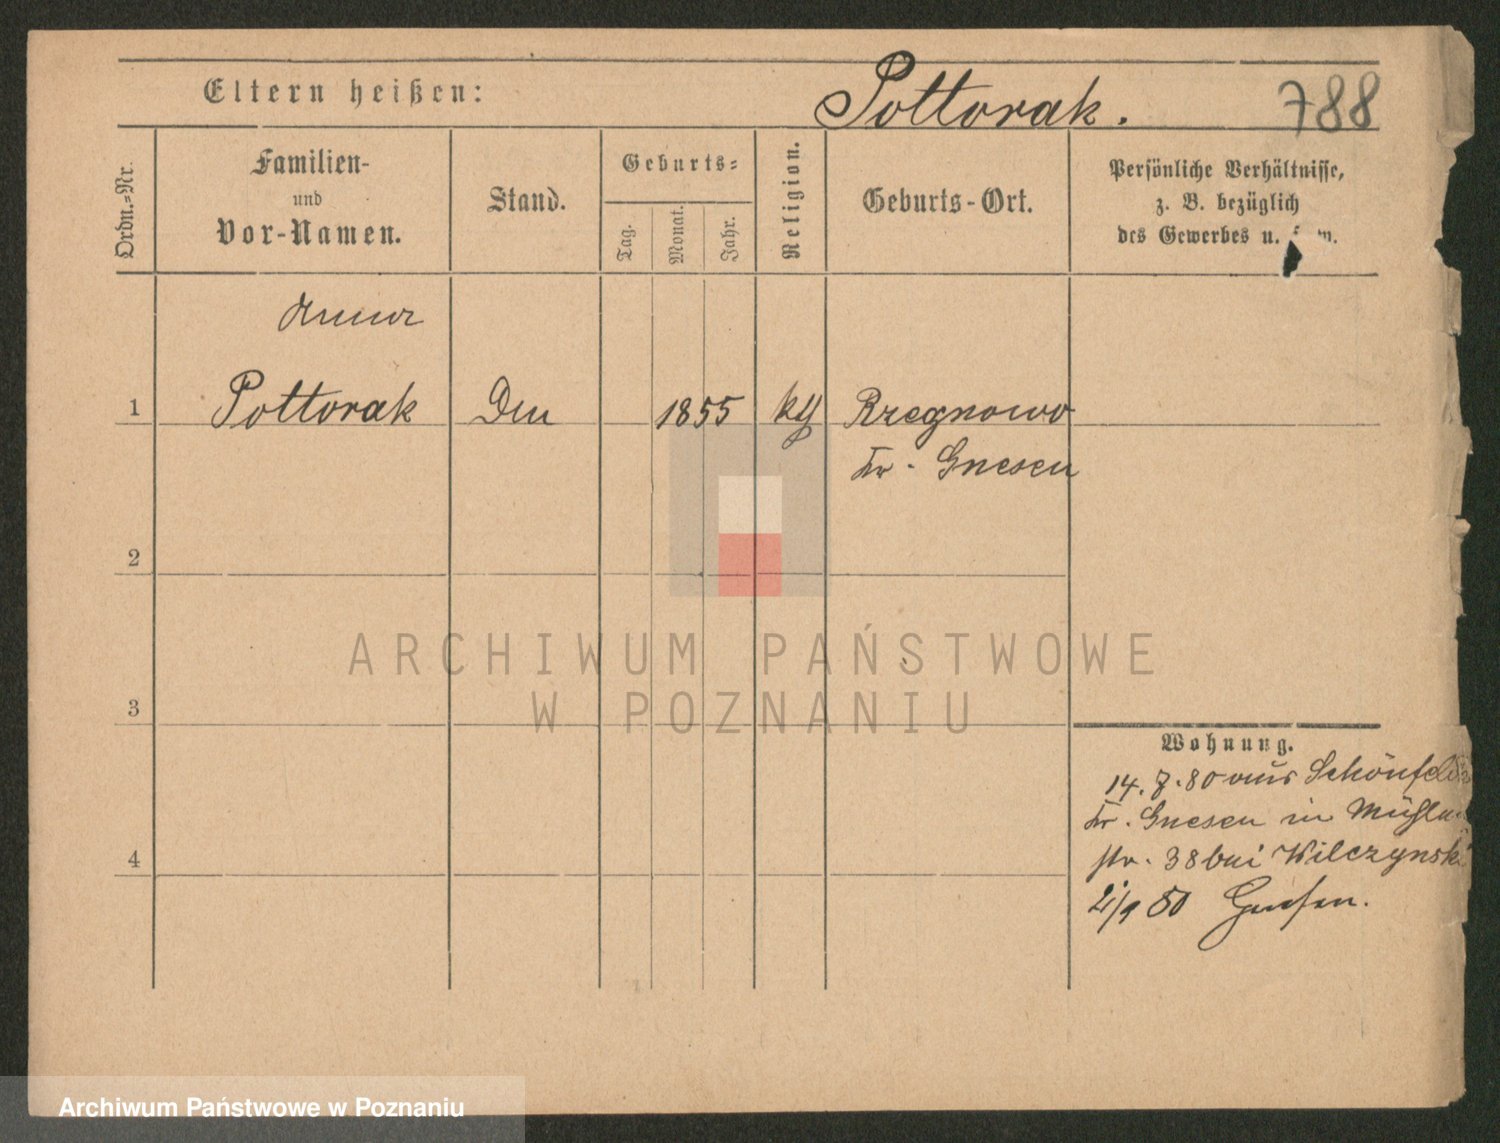 Eltern heißen:
Pottorak.
788
Ordn.=Nr.
Familien-
und
Vor-Namen.
Stand.
Geburts=
Tag.
Monat.
Jahr.
Religion.
Geburts-Ort.
Persönliche Verhältnisse,
z. B. bezüglich
des Gewerbes u. w.
Anna
1 Pottorak 1855 Rzegnowo
Kr. Gnesen
2
3
4
Wohnung.
14. 7. 80 aus Schönfeld
Kr. Gnesen in Mühlen
str. 38 bei Wilczynski
80 Gnesen.
ARCHIWUM PAŃSTWOWE
W POZNANIU
Archiwum Państwowe w Poznaniu